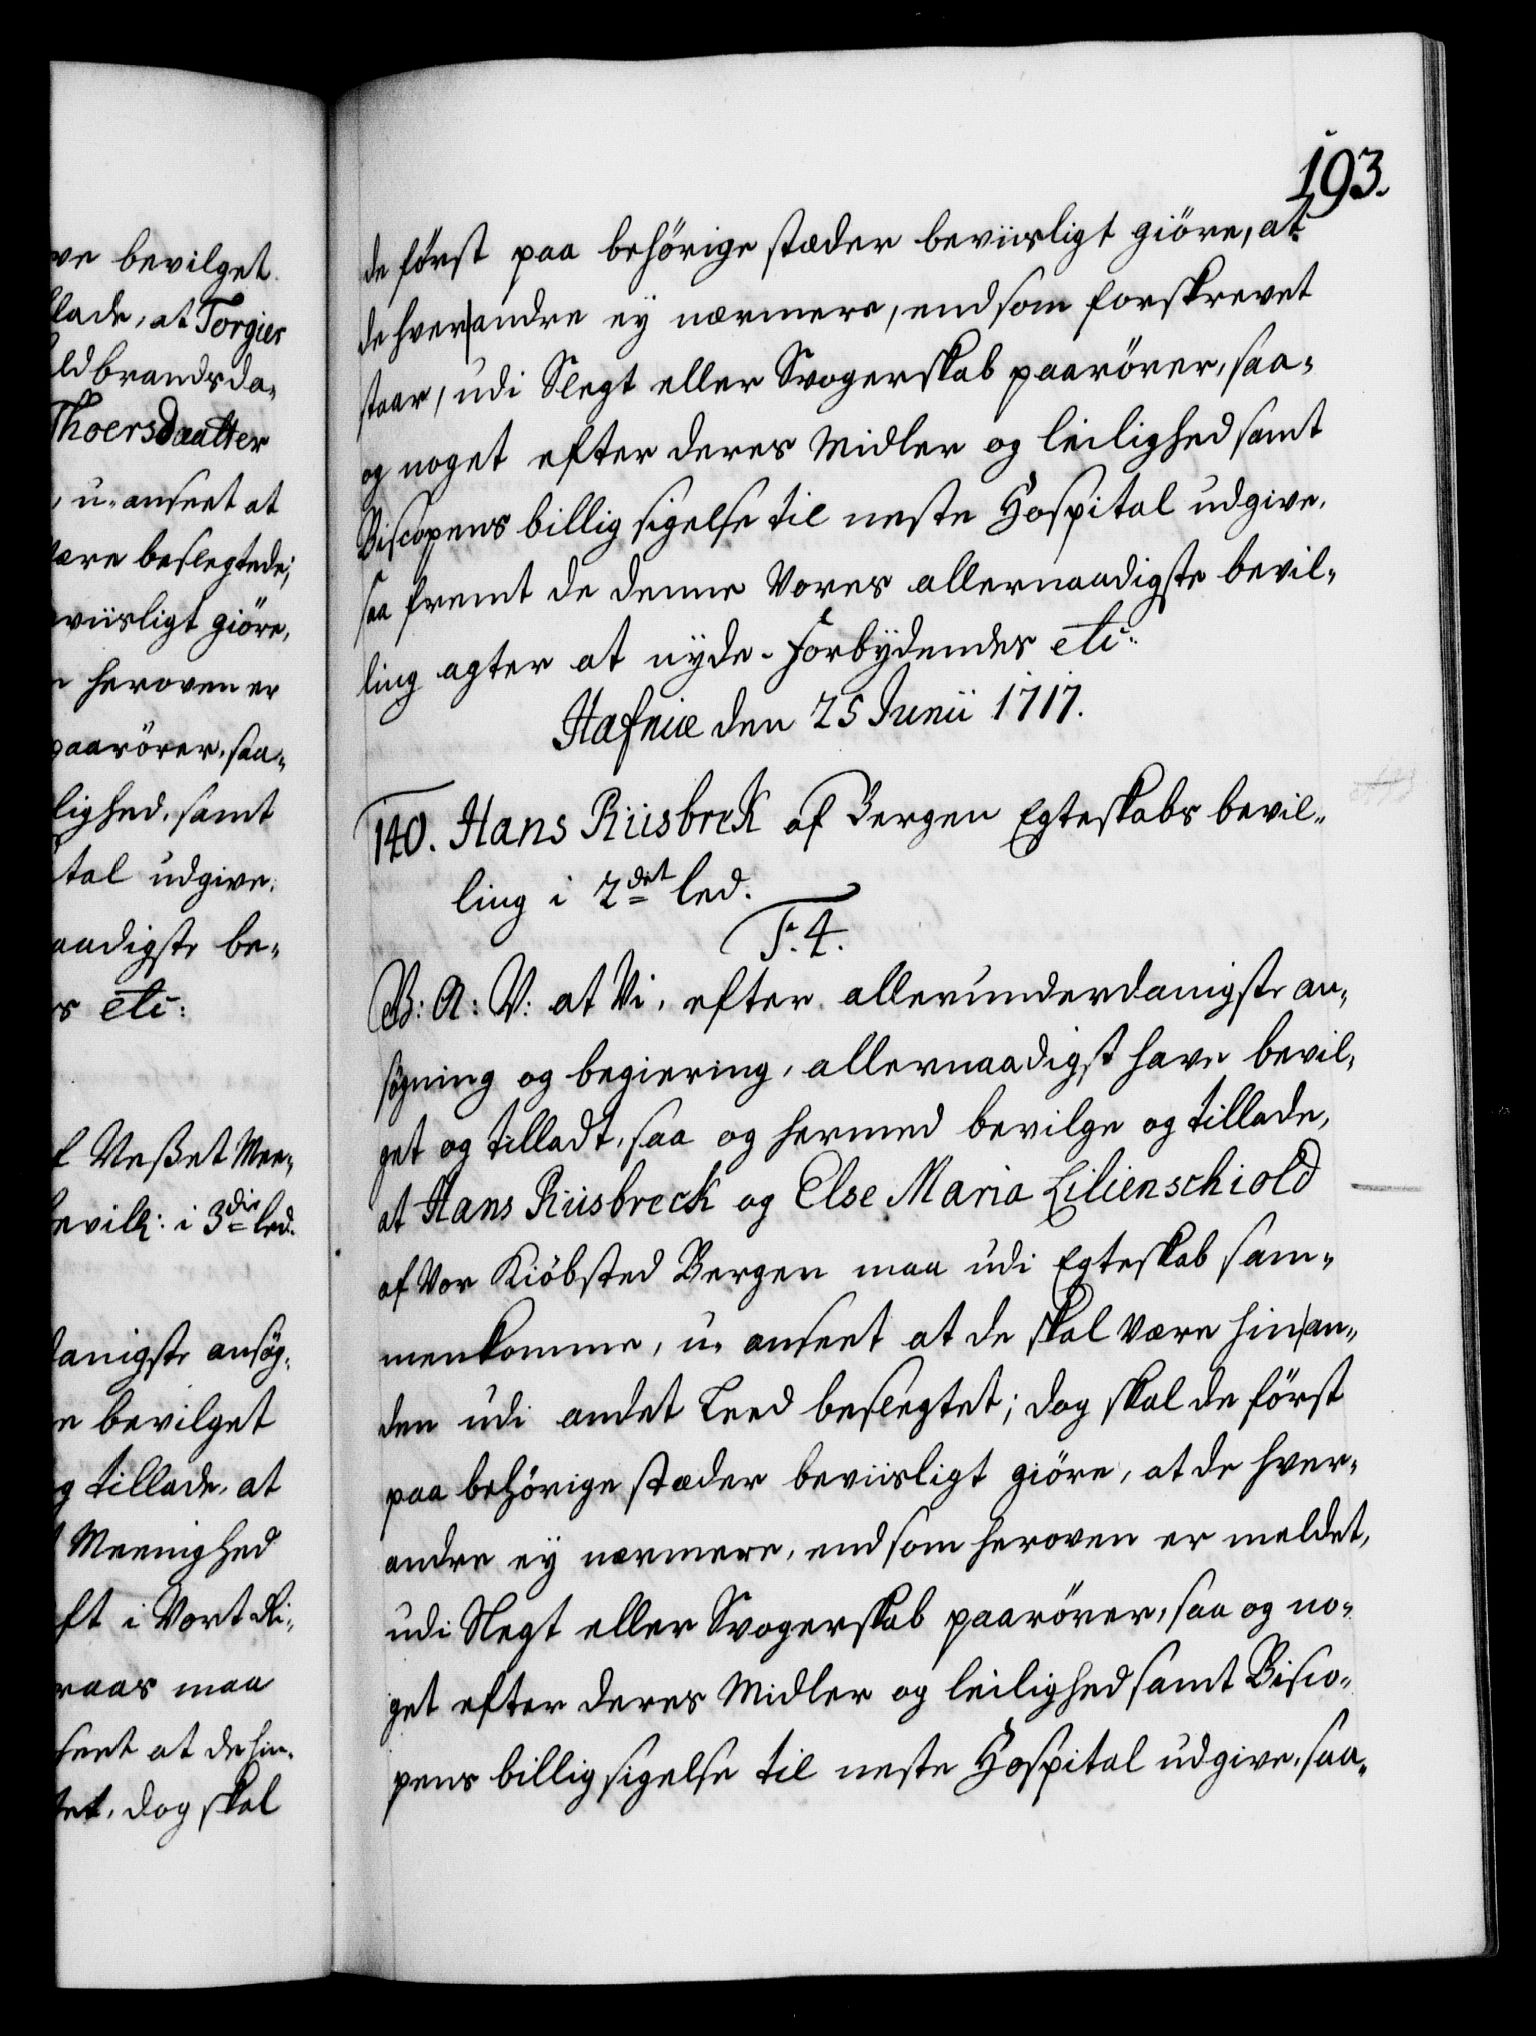 ve bevilget
lade, at Torgier
ldbrandsda-
Thoersdaatter
, u-anseet at
ære beslegtede;
viisligt giöre,
heroven er
paarörer, saa-
lighed, samt
tal udgive.
aadigste be-
s etc:
Meßet Mee-
bevilk: i 3die led.
danigste ansög-
n bevilget
g tillade, at
Meenighed
ft i Vort Ri-
raas maa
seet at de hin-
tet, dog skal
193.
de först paa behörige stæder beviisligt giöre, at
de hver andre ey nærmere, end som forskrevet
staar, udi Slegt eller Svogerskab paarörer, saa-
og noget efter deres Midler og leilighed samt
Biscopens billig sigelse til neste Hospital udgive,
saa fremt de denne Vores allernaadigste bevil-
ling agter at nyde. Forbydendes etc:
Hafniæ den 25 Junii 1717.
140. Hans Riisbreck af Bergen Egteskabs bevil-
ling i 2det led.
F. 4.
G: A: V: at Vi, efter allerunderdanigste an-
søgning og begiering, allernaadigst have bevil-
get og tilladt, saa og hermed bevilge og tillade,
at Hans Riisbreck og Else Maria Lilienschiold
af Vor Kiöbsted Bergen maa udi Egteskab sam-
menkomme, u-anseet at de skal være hinan-
den udi andet Leed beslegtet; dog skal de först
paa behörige stæder beviisligt giöre, at de hver-
andre ey nærmere, end som heroven er meldet,
udi Slegt eller Svogerskab paarörer, saa og no-
get efter deres Midler og leilighed samt Bisco-
pens billig sigelse til neste Hospital udgive, saa-